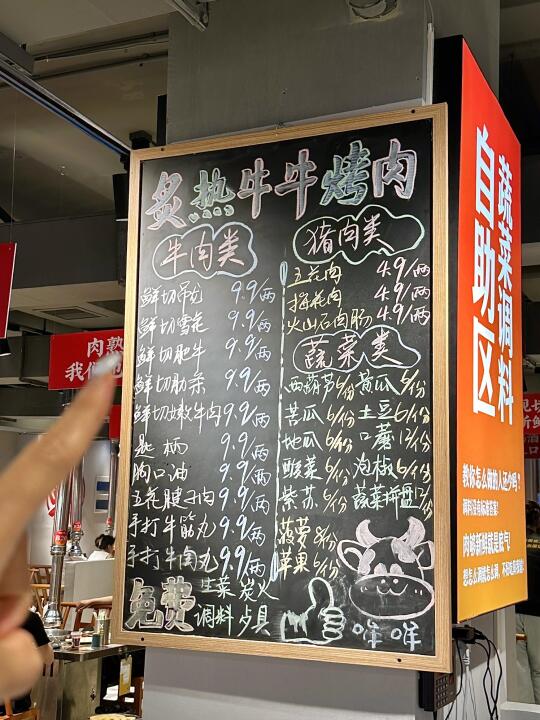 炙热牛牛烤肉
牛肉类
鲜切吊龙 9.9/两
鲜切雪花 9.9/两
鲜切肥牛 9.9/两
鲜切肋条 9.9/两
鲜切嫩牛肉 9.9/两
匙柄 9.9/两
胸口油 9.9/两
五花腱子肉 9.9/两
手打牛筋丸 9.9/两
手打牛肉丸 9.9/两
免费
生菜 炭火
调料 歺具
猪肉类
五花肉 4.9/两
梅花肉 4.9/两
火山石肉肠 4.9/两
蔬菜类
西葫芦6/份 黄瓜6/份
苦瓜6/份 土豆6/份
地瓜6/份 口蘑12/份
酸菜6/份 泡椒6/份
紫苏6/份 蔬菜拼盘12/份
菠萝8/份
苹果6/份
哞哞
蔬菜调料
自助区
教你怎么做的人还少吗？
调料没有标准答案！
肉够新鲜就是底气！
肉熟
我们